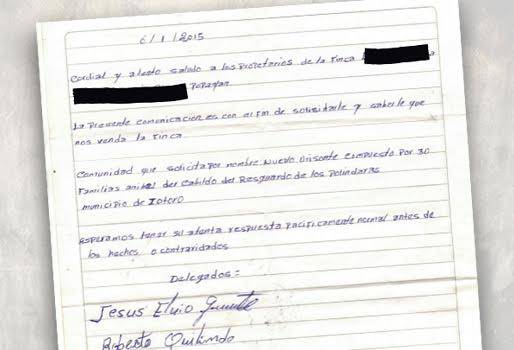 6/1/2015
Cordial y atento saludo a los Propietarios de la Finca
Popayan
La Presente comunicacion es con el fin de solisitarle y saberle que
nos venda la Finca
Comunidad que solicita por nombre Nuevo Orisonte compuesto Por 30
Familias anivel del Cabildo del Resguardo de los Polindaras
municipio de Totoró
esperamos tener su atenta respuesta pacificamente normal antes de
los hechos o contraridades
Delegados:
Jesus Elvio
Roberto Quilindo